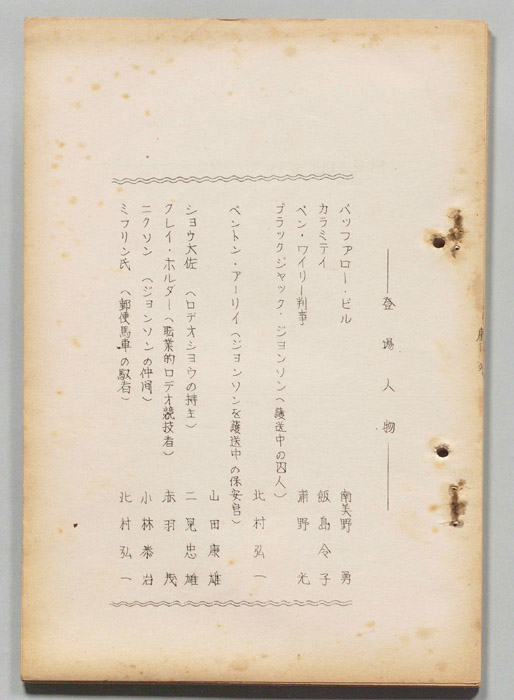 登場人物
バッファロー・ビル 南美野 勇
カラミティ 飯島令子
ベン・ワイリー判事 粛野 光
ブラックジャック・ジョンソン(護送中の囚人)
北村弘一
ベントン・アーリイ(ジョンソンを護送中の保安官)
山田康雄
ショウ大佐 (ロデオショウの持主) 二見忠雄
クレイ・ホルダー(職業的ロデオ競技者) 赤羽 茂
ニクソン (ジョンソンの仲间) 小林恭治
ミフリン氏 (郵便馬車の馭者) 北村弘一